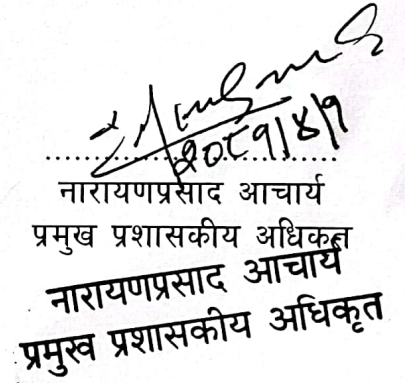 २०८१/४/१
नारायणप्रसाद आचार्य
प्रमुख प्रशासकीय अधिकृत
नारायणप्रसाद आचार्य
प्रमुख प्रशासकीय अधिकृत